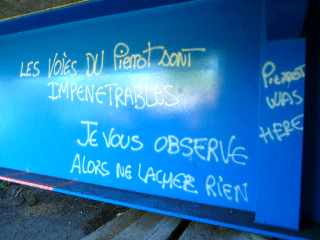 LES VOIES DU PIERROT SONT
IMPENETRABLES
JE VOUS OBSERVE
ALORS NE LACHEZ RIEN
PIERROT
WAS
HERE